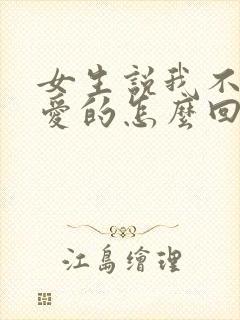 女生説我不
愛的怎麼回
江島繪理